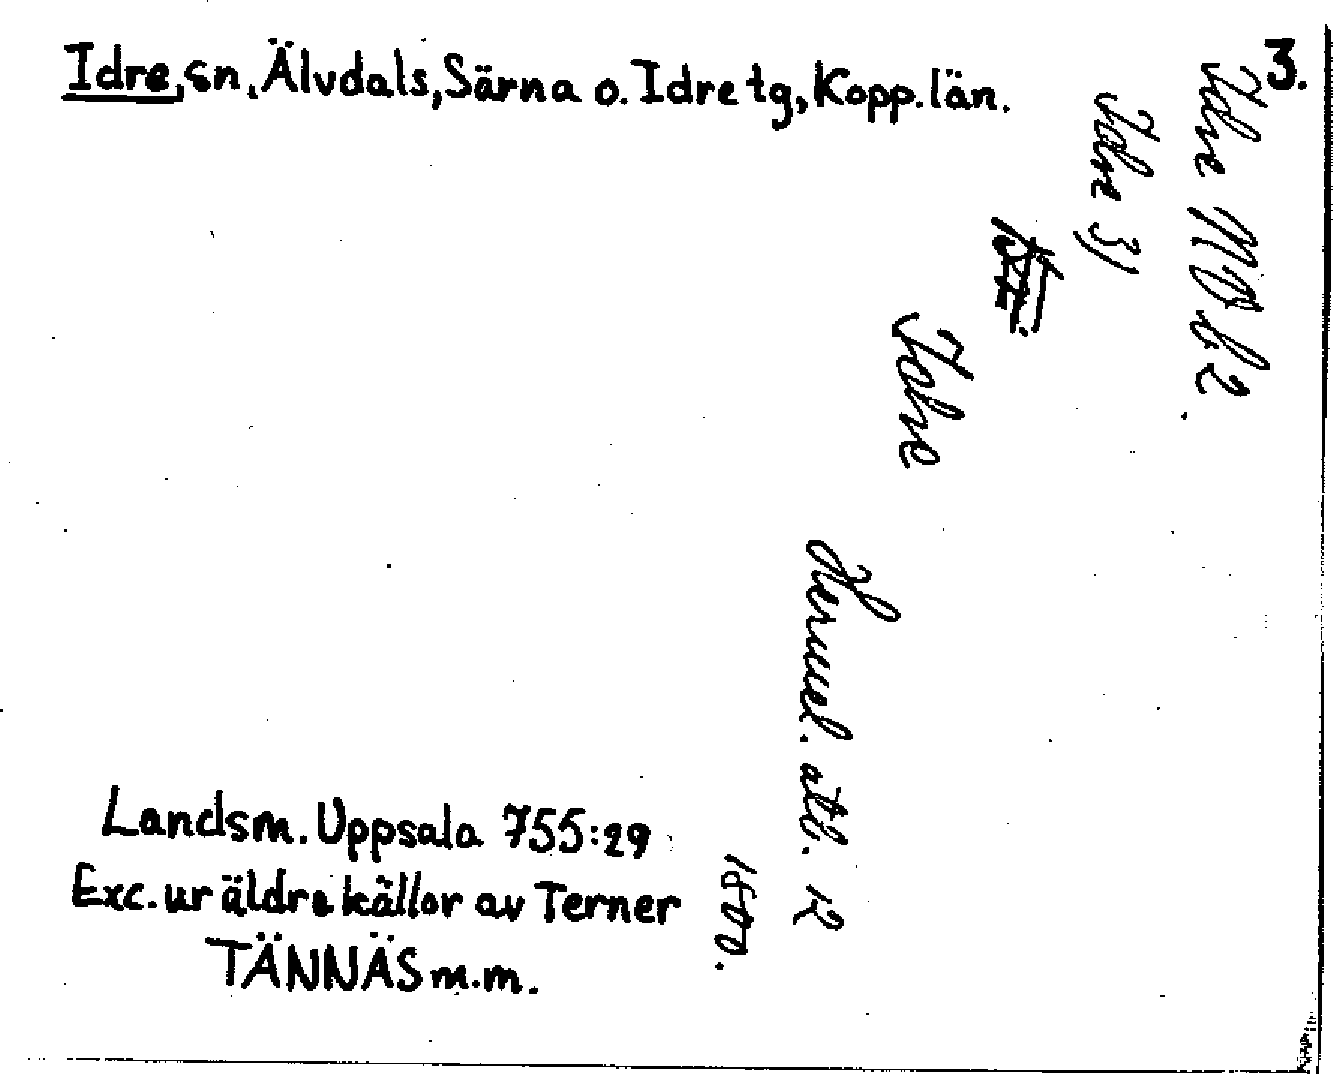 Idre, sn, Älvdals, Särna o. Idre tg, Kopp. län.
3.
Idre MB b 2
Idre 31
Idre
Hermel. atl. 12
1800.
Landsm. Uppsala 755:29
Exc. ur äldre källor av Terner
TÄNNÄS m.m.